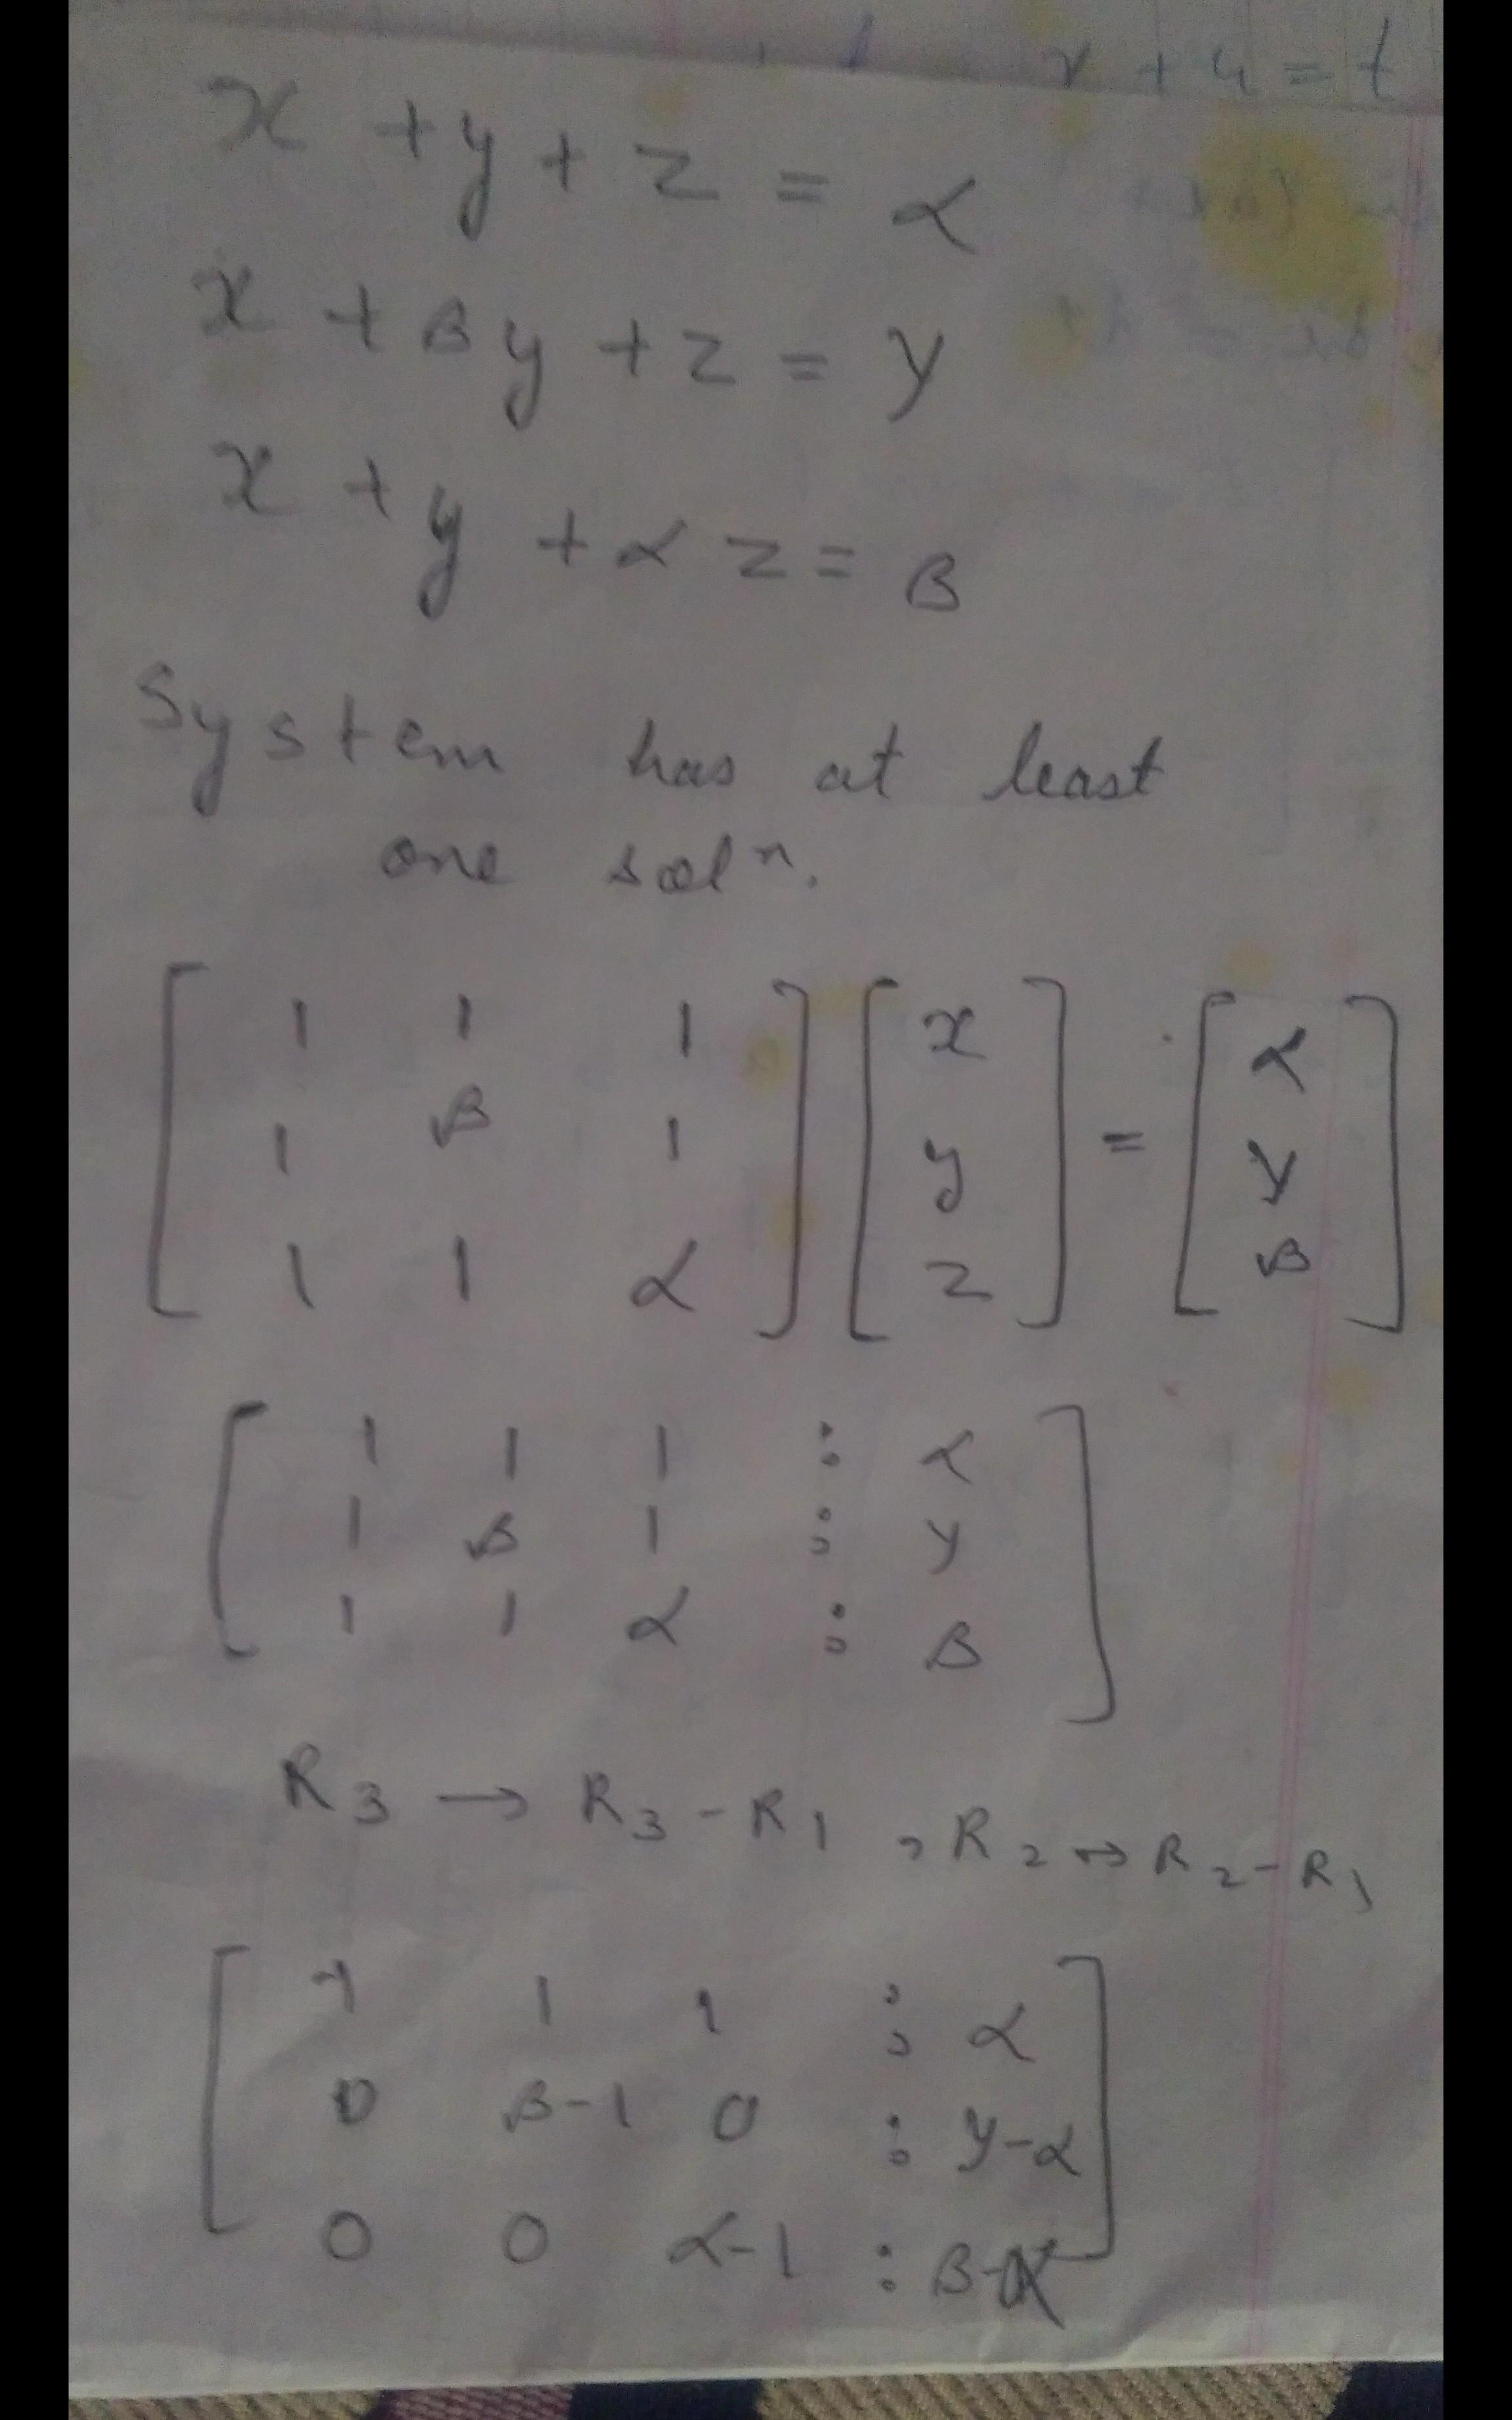 x + y = t
x + y + z = α
x + βy + z = γ
x + y + αz = β
System has at least
one solⁿ.
[ 1 1 1 ] [ x ] = [ α ]
[ 1 β 1 ] [ y ] [ γ ]
[ 1 1 α ] [ z ] [ β ]
[ 1 1 1 : α ]
[ 1 β 1 : γ ]
[ 1 1 α : β ]
R₃ → R₃ - R₁ , R₂ → R₂ - R₁
[ 1 1 1 : α ]
[ 0 β-1 0 : γ-α ]
[ 0 0 α-1 : β-α ]